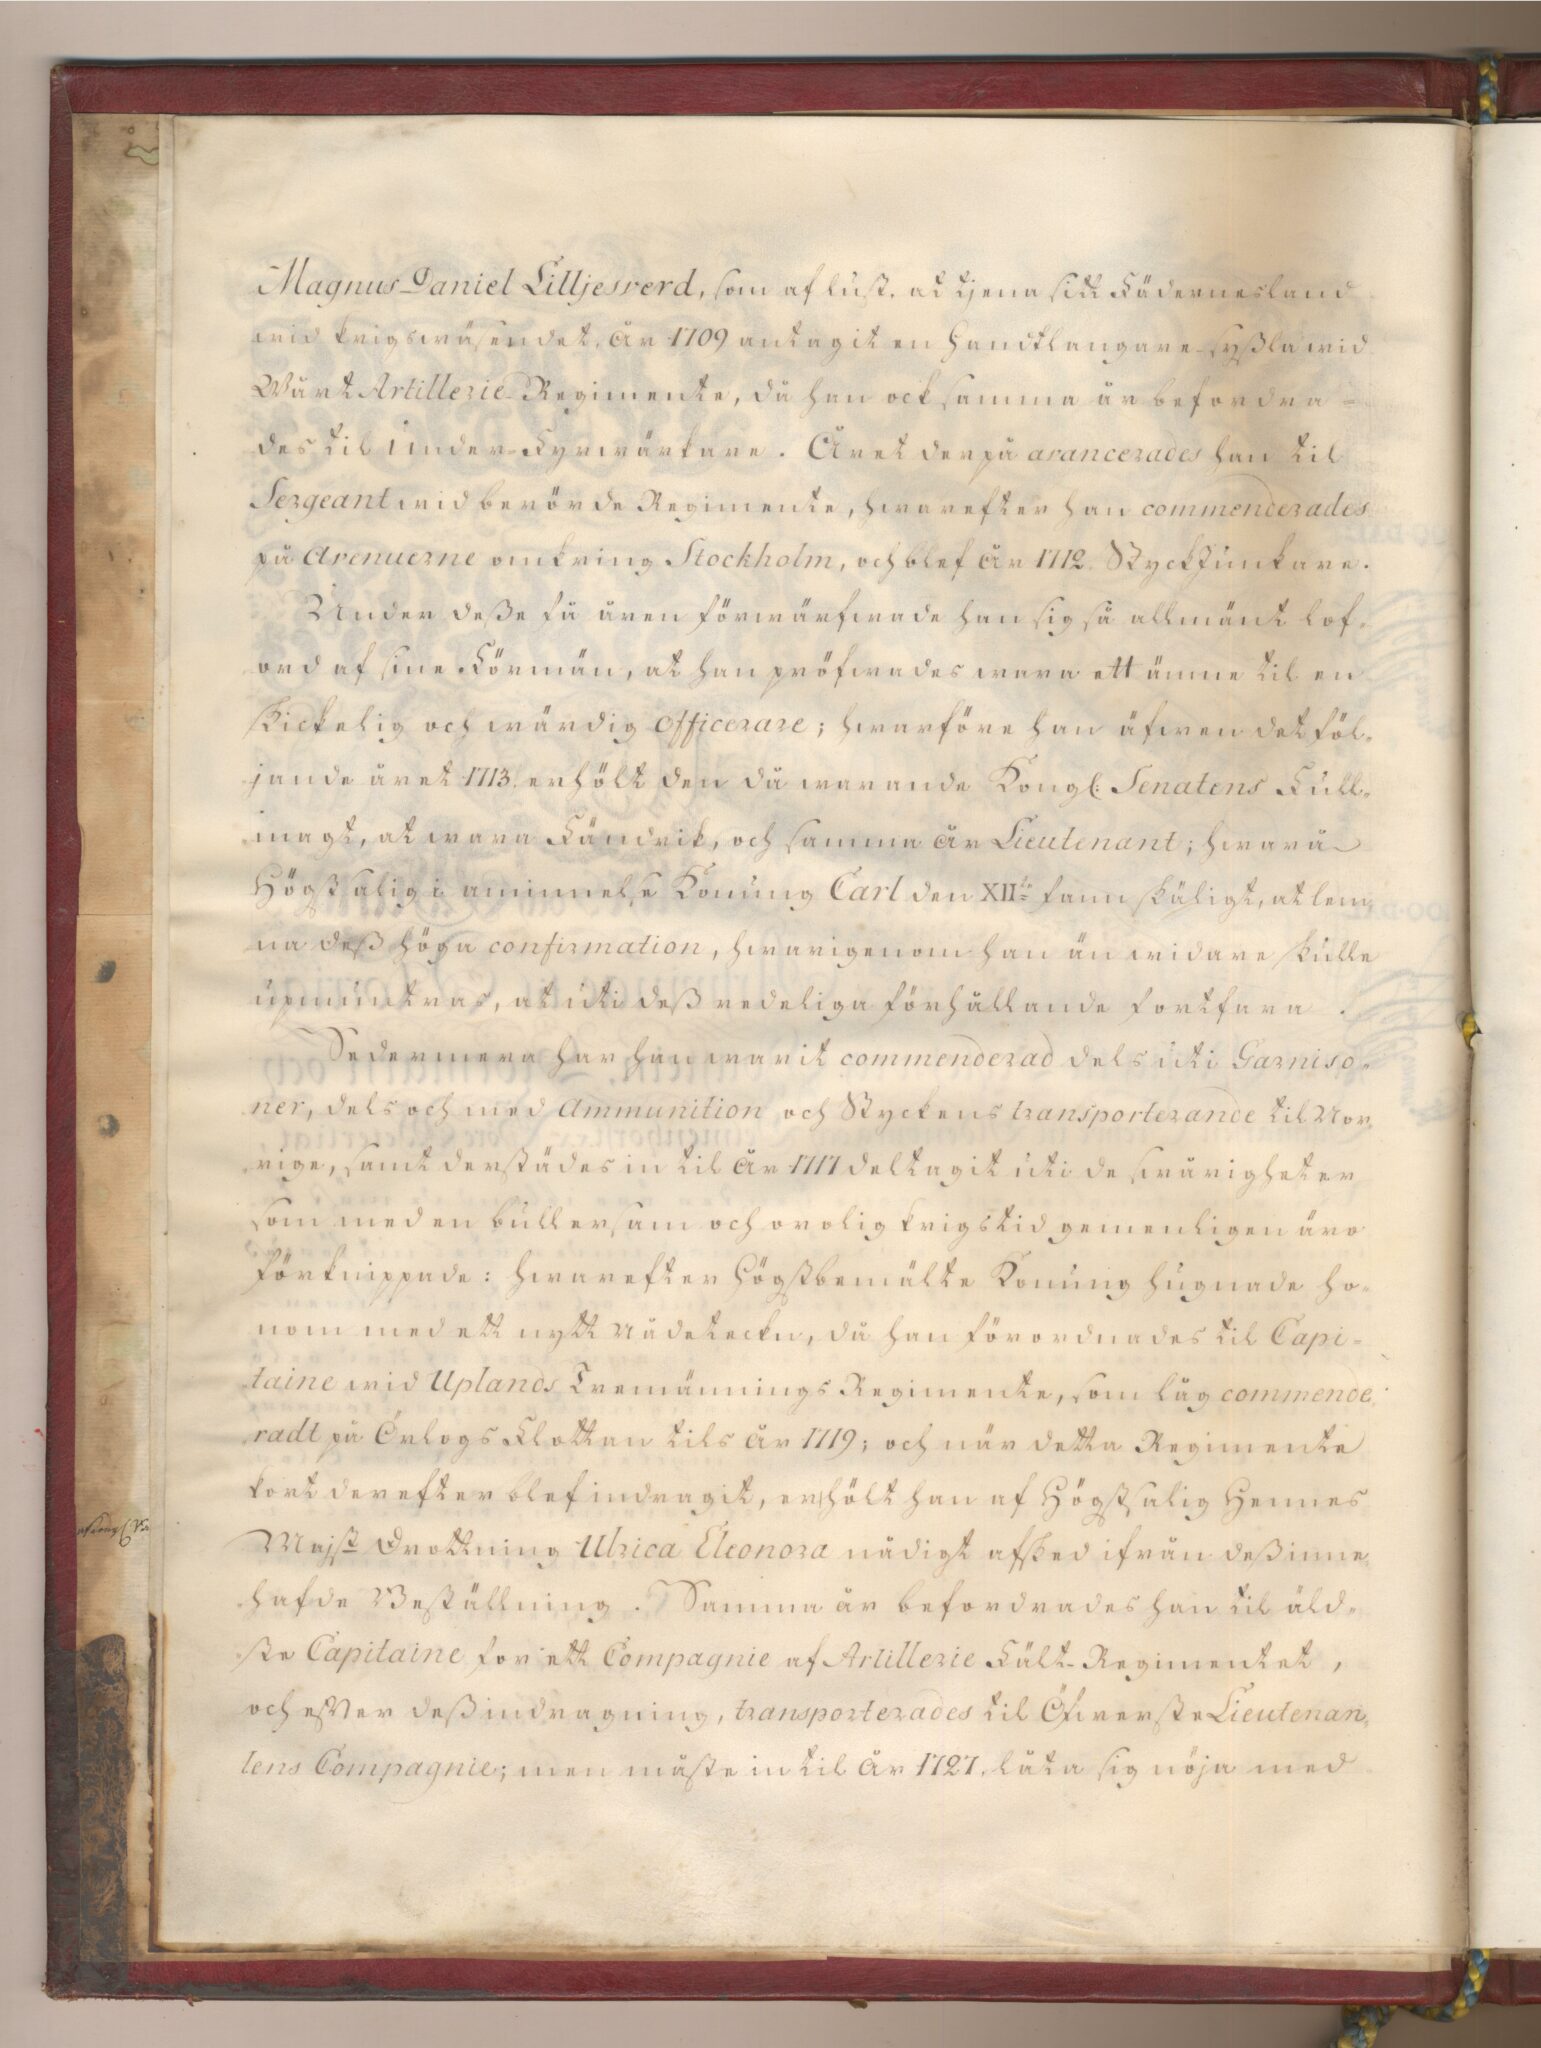 Magnus Daniel Lilljesverd, som af lust, at tjena sitt Fädernesland
wid krigswäsendet, År 1709 antagit en Handtlangare-syßla wid
Wårt Artillerie-Regimente, då han ock samma år befordra-
des til Under-Fyrwärkare. Året derpå avancerades han til
Sergeant wid berörde Regimente, hwarefter han commenderades
på Avenuerne omkring Stockholm, och blef År 1712. StyckJunkare.
Under deße få åren förwärfwade han sig så allmänt lof-
ord af sine Förmän, at han pröfwades wara ett ämne til en
skickelig och wärdig Officerare; hwarföre han äfwen det föl-
jande året 1713. erhölt den då warande Kongl: Senatens Full-
magt, at wara Fändrik, och samma År Lieutenant; hwarå
Högstsalig i åminnelse Konung Carl den XIIte fann skäligt, at lem-
na deß höga confirmation, hwarigenom han än widare skulle
upmuntras, at uti deß redeliga förhållande fortfara.
Sedermera har han warit commenderad dels uti Garniso-
ner, dels och med Ammunition och Styckens transporterande til Nor-
rige, samt derstädes in til År 1717 deltagit uti de swårigheter
som med en bullersam och orolig krigstid gemenligen äro
förknippade: hwarefter Högstbemälte Konung hugnade ho-
nom med ett nytt Nådeteckn, då han förordnades til Capi-
taine wid Uplands Tremännings Regimente, som låg commende-
radt på Örlogs Flottan tils År 1719; och när detta Regimente
kort derefter blef indragit, erhölt han af Högstsalig Hennes
Majst Drottning Ulrica Eleonora nådigt afsked ifrån deß inne-
hafde Beställning. Samma år befordrades han til äld-
ste Capitaine för ett Compagnie af Artillerie Fält-Regimentet,
och efter deß indragning, transporterades til Öfwerste Lieutenan-
tens Compagnie; men måste in til År 1727. låta sig nöja med